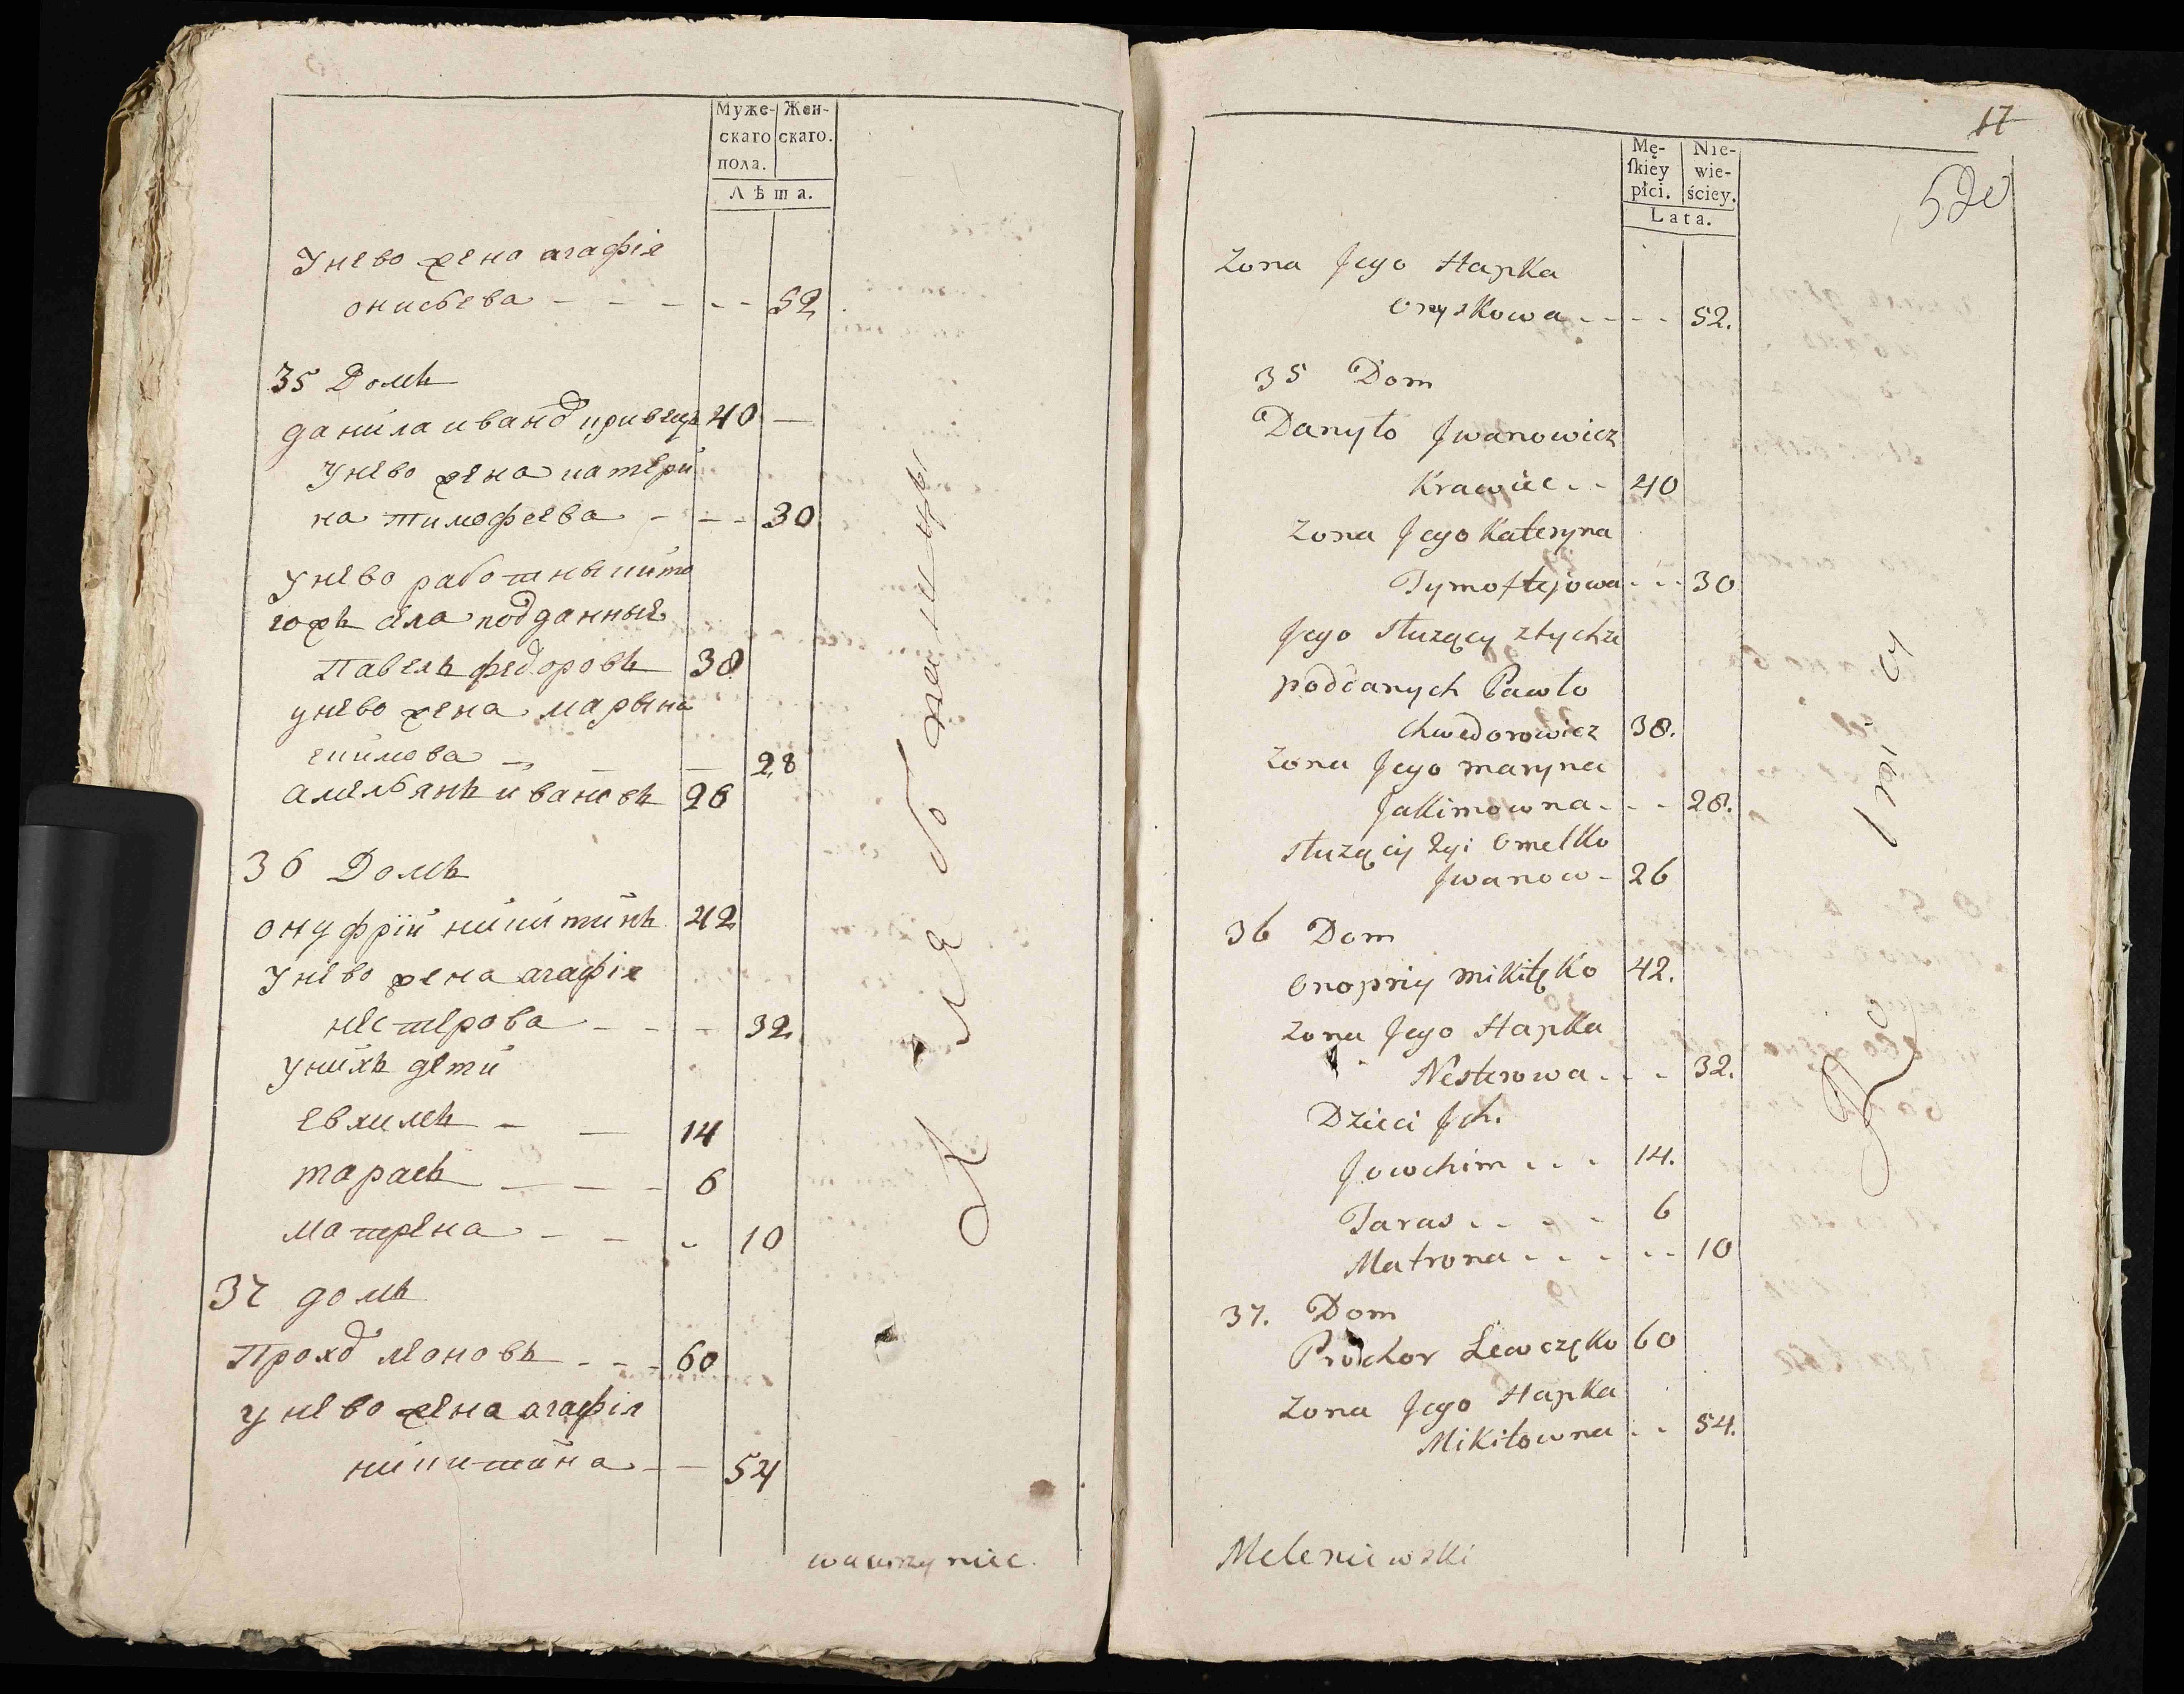 Муже- Жен-
скаго скаго.
пола.
Лѣта.
У нево жена агафія
онисьева - - - - - 52
35 Домъ
данила иванов кривецъ 40 —
У нево жена катери
на тимофеева - - - 30
У нево работныи їто
гожъ села подданные
Павелъ федоровъ 38
у нево жена марына
екимова - - - 28
амельянъ ивановъ 26
36 Домъ
онуфрїй никитинъ 42
У нево жена агафія
нестерова - - - 32
У нихъ дети
евхимъ - - 14
тарасъ - - - 6
матрена - - - 10
37 домъ
Прохор леоновъ - - - 60
у нево жена агафія
никитина - - 54
wawrzyniec
17
520
Mę- Nie-
ſkiey wie-
płci. ściey.
Lata.
Zona Jego Hapka
Oryskowa - - - - 52.
35 Dom
Danyło Jwanowicz
Krawiec - - 40
Zona Jego Kateryna
Tymoftejowa - - - 30
Jego służący z tychże
poddanych Pawło
Chwedorowicz 38.
Zona Jego maryna
Jakimowna - - - 28.
służący Omelko
Jwanow - 26
36 Dom
Onopriy Mikitęko 42.
Zona Jego Hapka
Nesterowa - - - 32.
Dzieci Jch.
Jowchim - - - 14.
Taras - - - - 6
Matrona - - - - - 10
37. Dom
Prochor Lewczęko 60
Zona Jego Hapka
Mikitowna - - 54.
Meleniewski